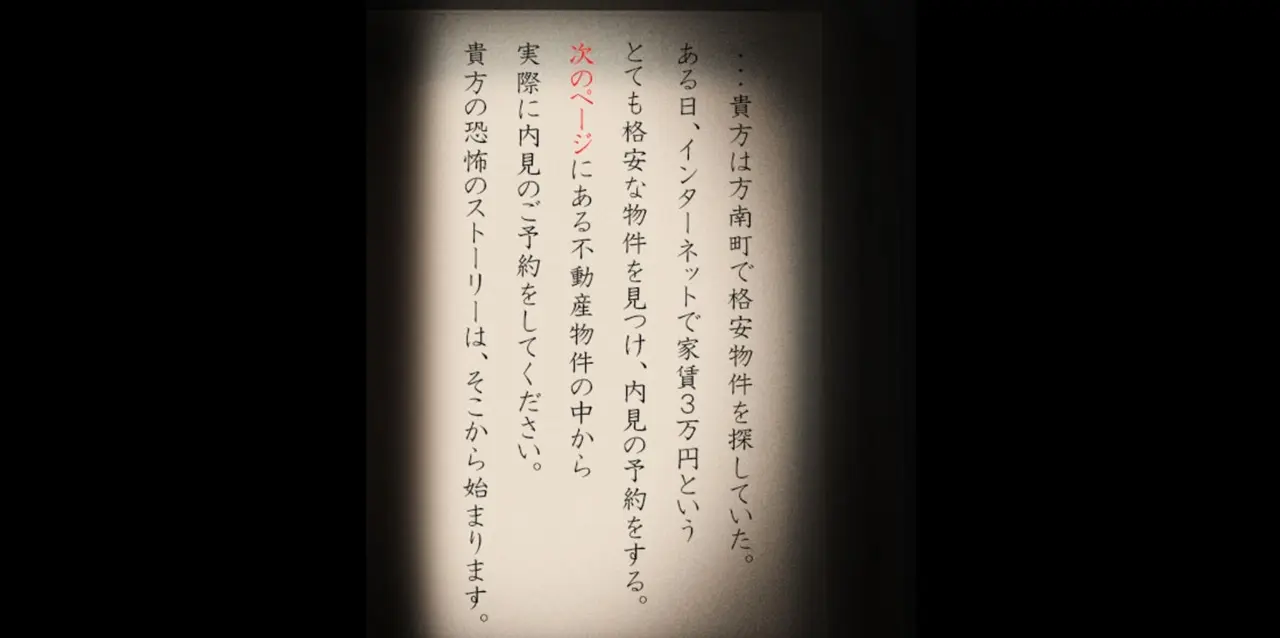 ・・・貴方は方南町で格安物件を探していた。
ある日、インターネットで家賃３万円という
とても格安な物件を見つけ、内見の予約をする。
次のページにある不動産物件の中から
実際に内見のご予約をしてください。
貴方の恐怖のストーリーは、そこから始まります。